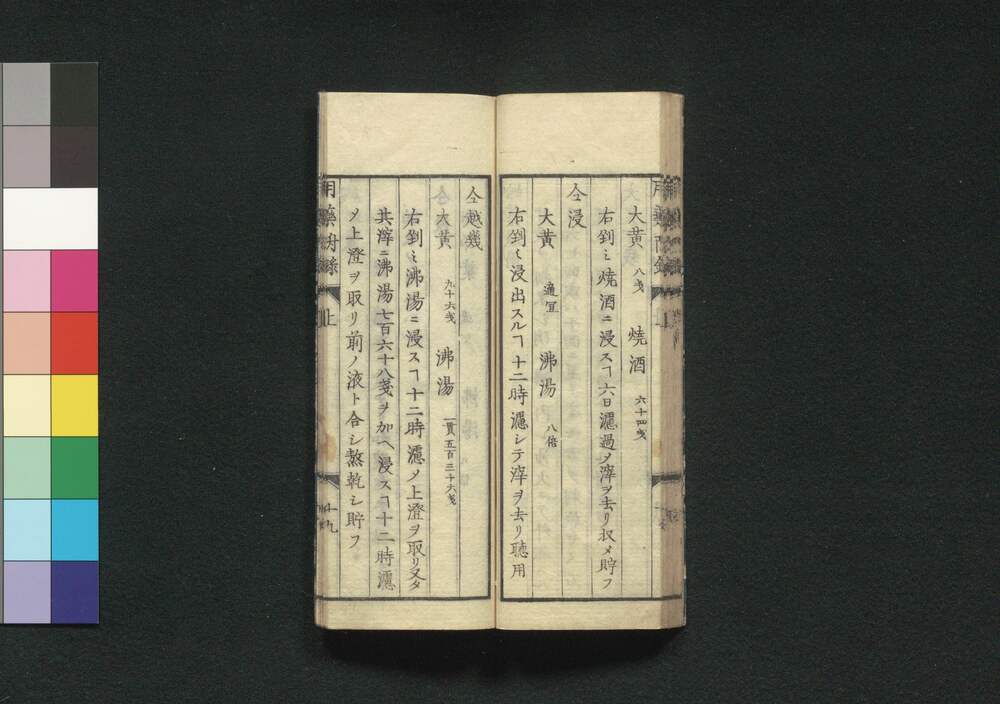 大黄 八戔 焼酒 六十四戔
右剉ミ焼酒ニ浸スヿ六日濾過メ滓ヲ去リ収メ貯フ
仝浸
大黄 適宜 沸湯 八倍
右剉ミ浸出スルヿ十二時濾シテ滓ヲ去リ聴用
仝越幾
大黄 九十六戔 沸湯 一貫五百三十六戔
右剉ミ沸湯ニ浸スヿ十二時濾メ上澄ヲ取リ又タ
其滓ニ沸湯七百六十八戔ヲ加ヘ浸スヿ十二時濾
メ上澄ヲ取リ前ノ液ト合シ熬乾シ貯フ